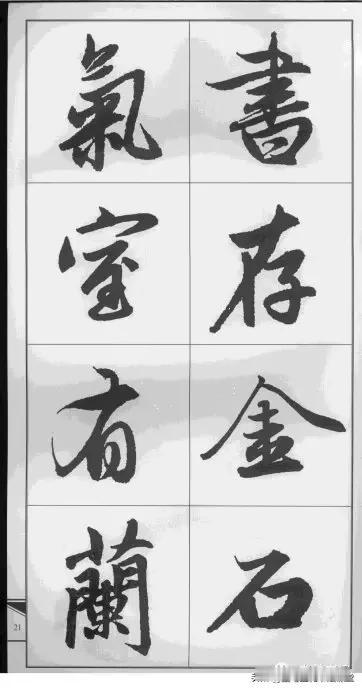 書存金石
氣室有蘭
21